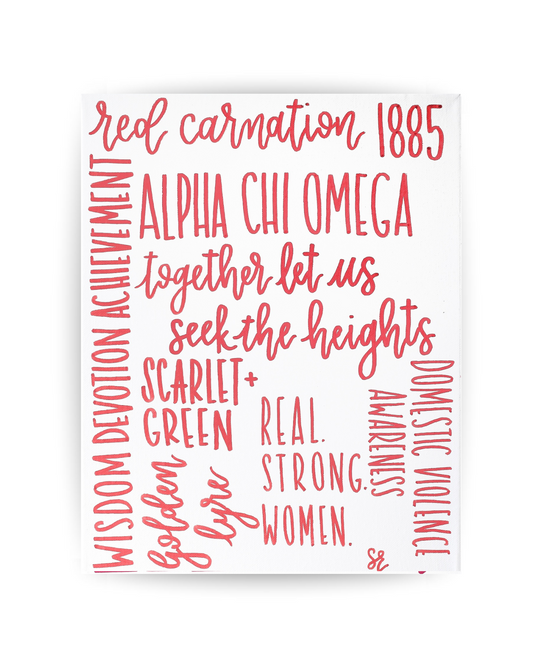 red carnation 1885
WISDOM DEVOTION ACHIEVEMENT
ALPHA CHI OMEGA
together let us
seek the heights
SCARLET +
GREEN
golden
lyre
REAL.
STRONG.
WOMEN.
DOMESTIC VIOLENCE
AWARENESS